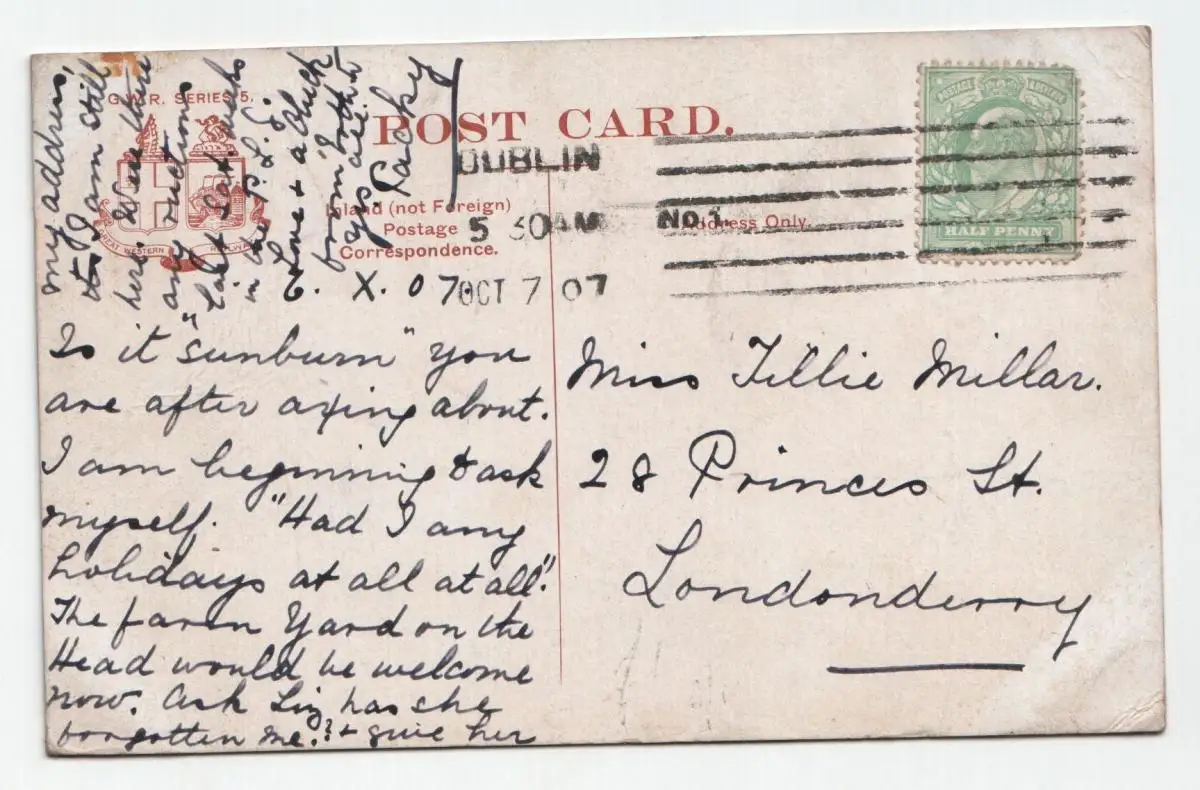 G.W.R. SERIES 5.
POST CARD.
GREAT WESTERN RAILWAY
Inland (not Foreign)
Postage
Correspondence.
Address Only.
DUBLIN
5 30AM
OCT 7 07
NO.1.
POSTAGE & REVENUE
HALF PENNY
6. X. 07.
Is it "sunburn" you
are after axing about.
I am beginning to ask
myself. "Had I any
holidays at all at all".
The farm Yard on the
Head would be welcome
now. Ask Liz has she
forgotten me? & give her
my address,
I am still
here. Was there
any ructions
"Last weeks
in the P.L.E.
Love & a chuck
from both
yrs. all
Packy
Miss Tillie Millar.
28 Princes St.
Londonderry